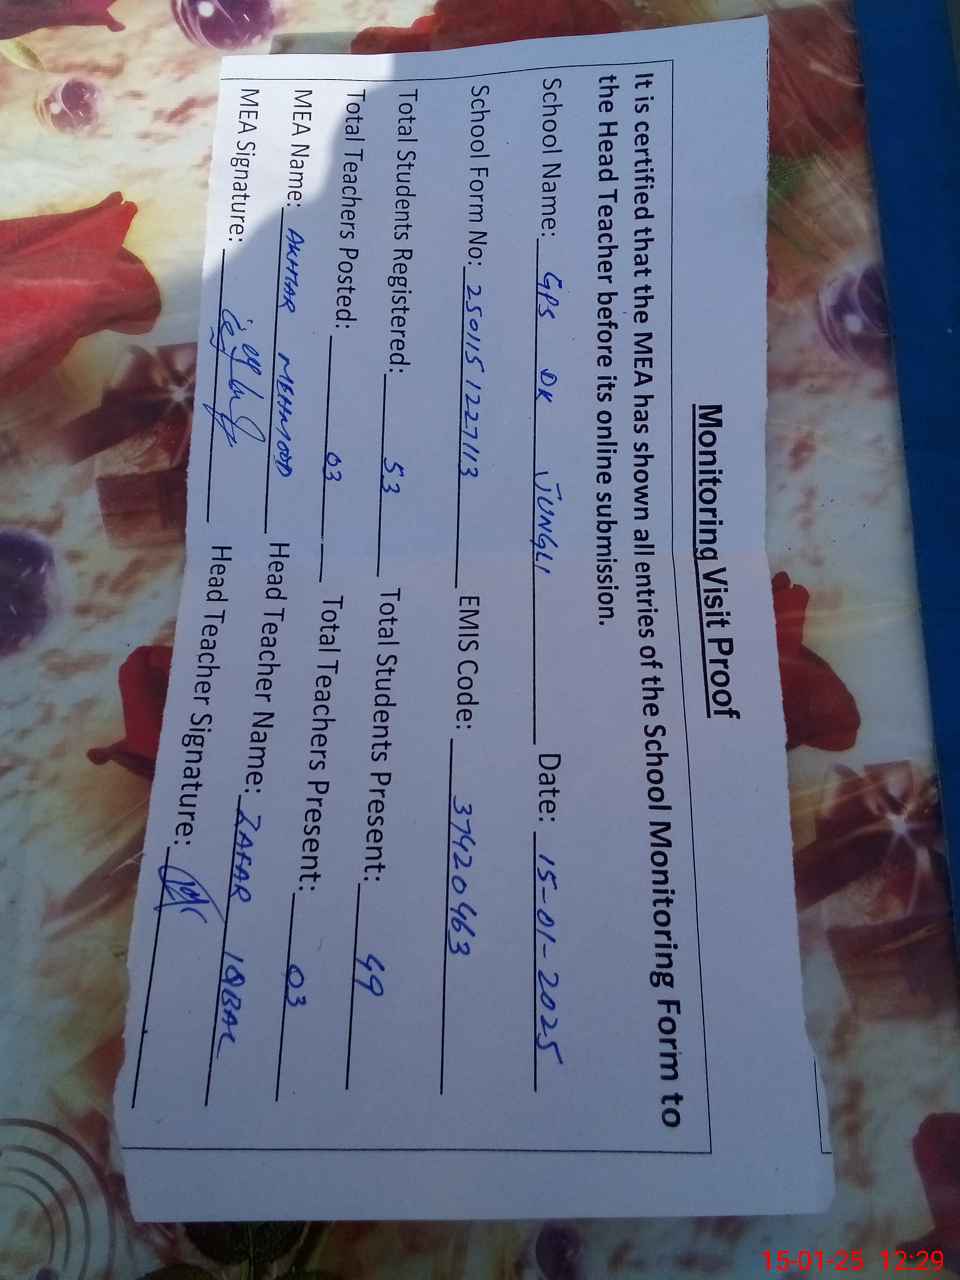 Monitoring Visit Proof
It is certified that the MEA has shown all entries of the School Monitoring Form to
the Head Teacher before its online submission.
School Name: GPS DK JUNGLI Date: 15-01-2025
School Form No: 2501151227113 EMIS Code: 37420463
Total Students Registered: 53 Total Students Present: 49
Total Teachers Posted: 03 Total Teachers Present: 03
MEA Name: AKHTAR MEHMOOD Head Teacher Name: ZAFAR IQBAL
MEA Signature: Head Teacher Signature:
15-01-25 12:29